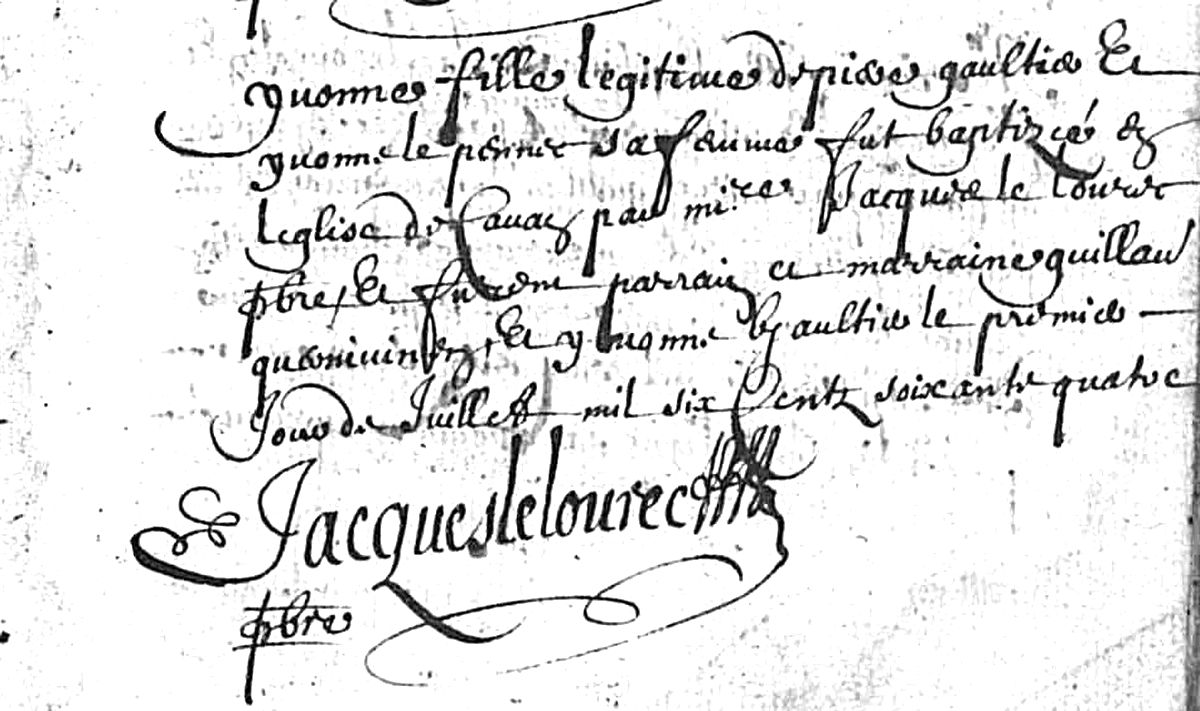 yuonne fille legitime de pierre gaultier &
yuonne le pennec sa femme fut baptizée en
leglise de Cavan par mire Jacques le Lourec
pbre, & furent parrain et marraine guillau
quemivinsen, & yuonne Gaultier le premier
Jour de Juillet mil six Centz soixante quatre
Jacques le lourec
pbre